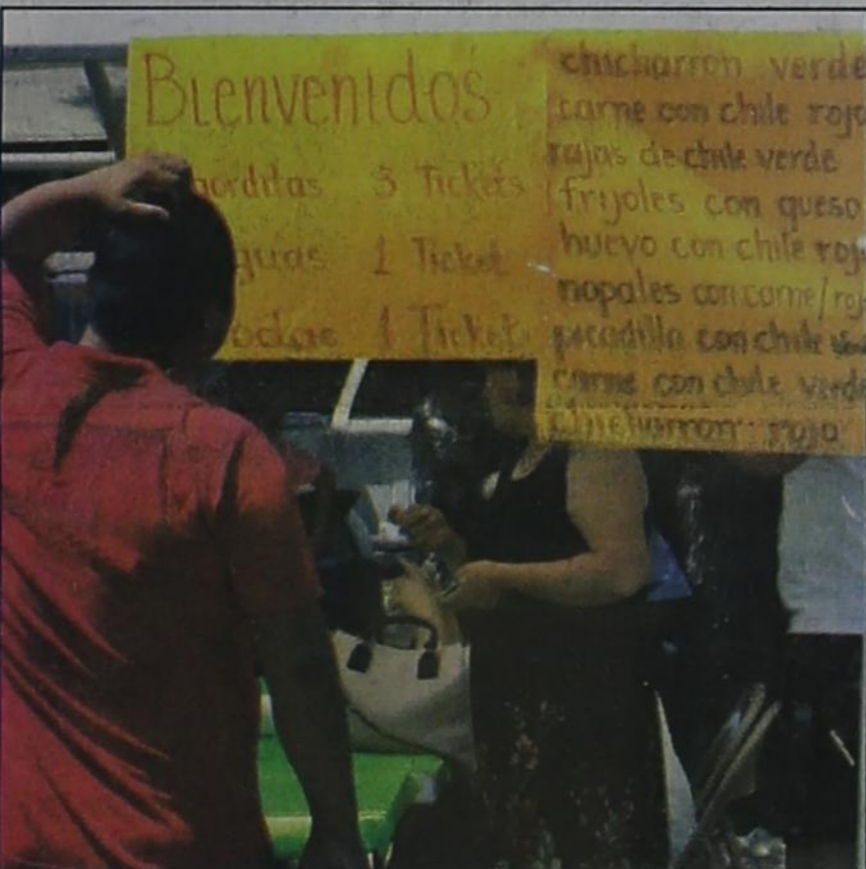 Bienvenidos
gorditas 3 Tickets
guas 1 Ticket
odas 1 Ticket
chicharron verde
carne con chile rojo
rajas de chile verde
frijoles con queso
huevo con chile rojo
nopales con carne/roj
picadillo con chile
carne con chile verde
chicharron rojo